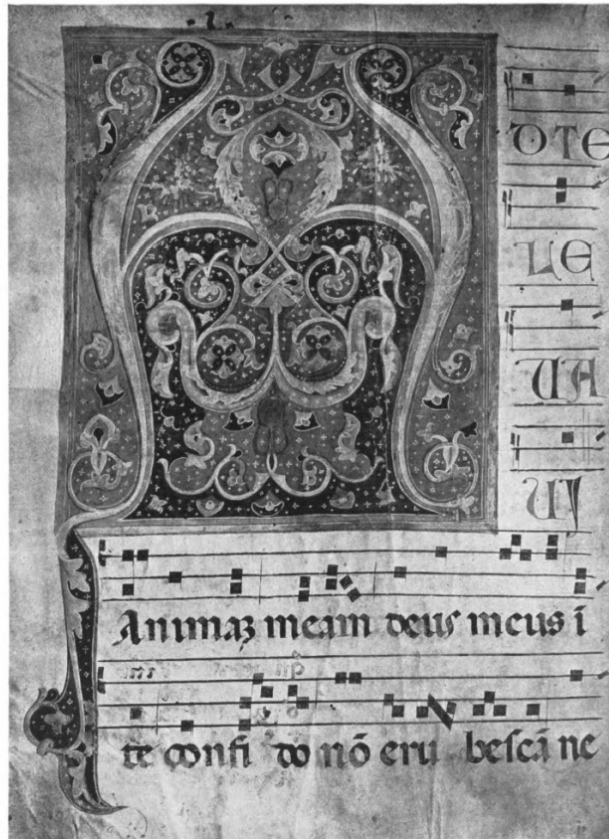 A D TE
LE
UA
UI
Animaꝫ meam deus meus ī
te confi do nō eru beſcā ne